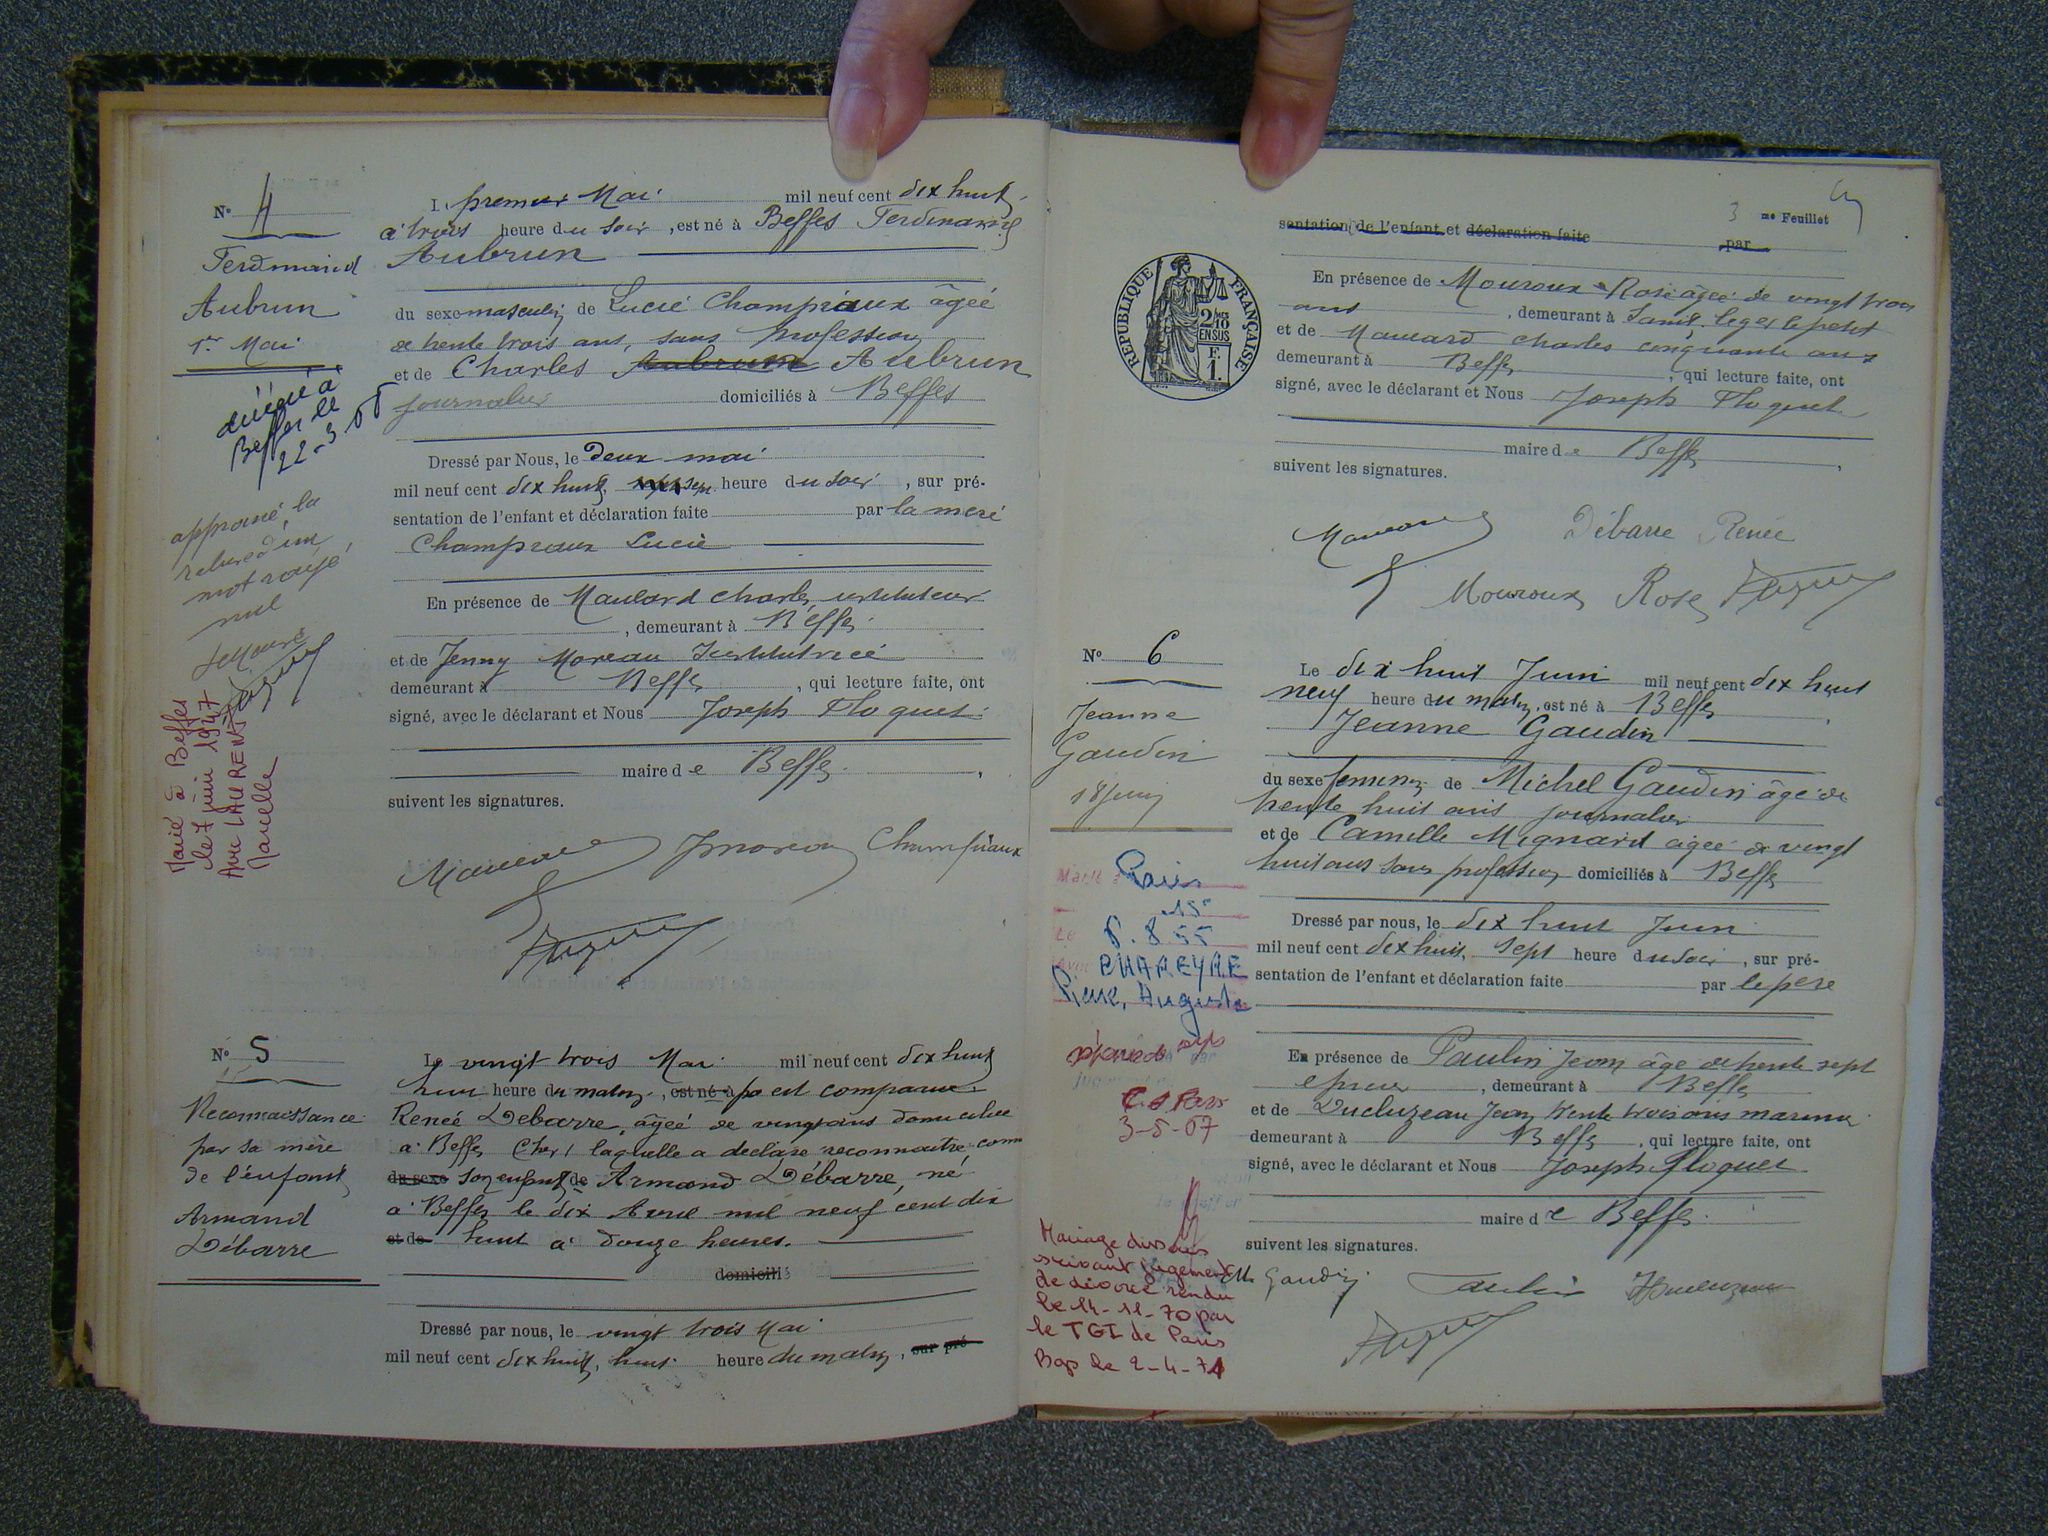 N° 4
Ferdinand
Aubrun
1er Mai
décédé à
Beffes le
22-3
approuvé la
rature d'un
mot rayé
nul
Le Maire
Marié à Beffes
le 7 juin 1947
Avec LAURENT
Marcelle
Le premier Mai mil neuf cent dix huit
à trois heure du soir, est né à Beffes Ferdinand
Aubrun
du sexe masculin de Lucie Champiaux âgée
de trente trois ans, sans profession
et de Charles Aubrun Aubrun
journalier domiciliés à Beffes
Dressé par Nous, le Deux mai
mil neuf cent dix huit sept heure du soir, sur pré-
sentation de l'enfant et déclaration faite par la mère
Champiaux Lucie
En présence de Maulard Charles instituteur
, demeurant à Beffes
et de Jenny Moreau Institutrice
demeurant à Beffes, qui lecture faite, ont
signé, avec le déclarant et Nous Joseph Floquet
maire de Beffes,
suivent les signatures.
JMoreau Champiaux
N° 5
Reconnaissance
par sa mère
de l'enfant
Armand
Débarre
Le vingt trois Mai mil neuf cent dix huit
huit heure du matin, est né à est comparue
Renée Debarre, âgée de vingt ans domiciliée
à Beffes (Cher) laquelle a déclaré reconnaître comme
du sexe son enfant de Armand Débarre, né
à Beffes le dix Avril mil neuf cent dix
et de huit à douze heures.
domicilié
Dressé par nous, le vingt trois Mai
mil neuf cent dix huit, huit heure du matin, sur pré
3 me Feuillet
sentation de l'enfant et déclaration faite par
RÉPUBLIQUE FRANÇAISE
2/10 MES
EN SUS
F.
1.
En présence de Mouroux Rose âgée de vingt trois
ans, demeurant à Saint Leger le petit
et de Maulard Charles cinquante ans
demeurant à Beffes, qui lecture faite, ont
signé, avec le déclarant et Nous Joseph Floquet
maire de Beffes,
suivent les signatures.
Débarre Renée
Mouroux Rose
N° 6
Jeanne
Gaudin
18 Juin
Marié à Paris
15e
Le 8.55
avec CHAREYRE
Pierre, Auguste
3-5-67
Mariage dissous
suivant jugement
de divorce rendu
le 14-11-70 par
le TGI de Paris
Bgs le 2-4-71
Le dix huit Juin mil neuf cent dix huit
neuf heure du matin, est né à Beffes,
Jeanne Gaudin
du sexe féminin de Michel Gaudin âgé de
trente huit ans journalier
et de Camille Mignard âgée de vingt
huit ans sans profession domiciliés à Beffes
Dressé par nous, le dix huit Juin
mil neuf cent dix huit, sept heure du soir, sur pré-
sentation de l'enfant et déclaration faite par le père
En présence de Paulin Jean âgé de trente sept
, demeurant à Beffes
et de Ducluzeau Jean trente trois ans
demeurant à Beffes, qui lecture faite, ont
signé, avec le déclarant et Nous Joseph Floquet
maire de Beffes
suivent les signatures.
M Gaudin Paulin JDucluzeau